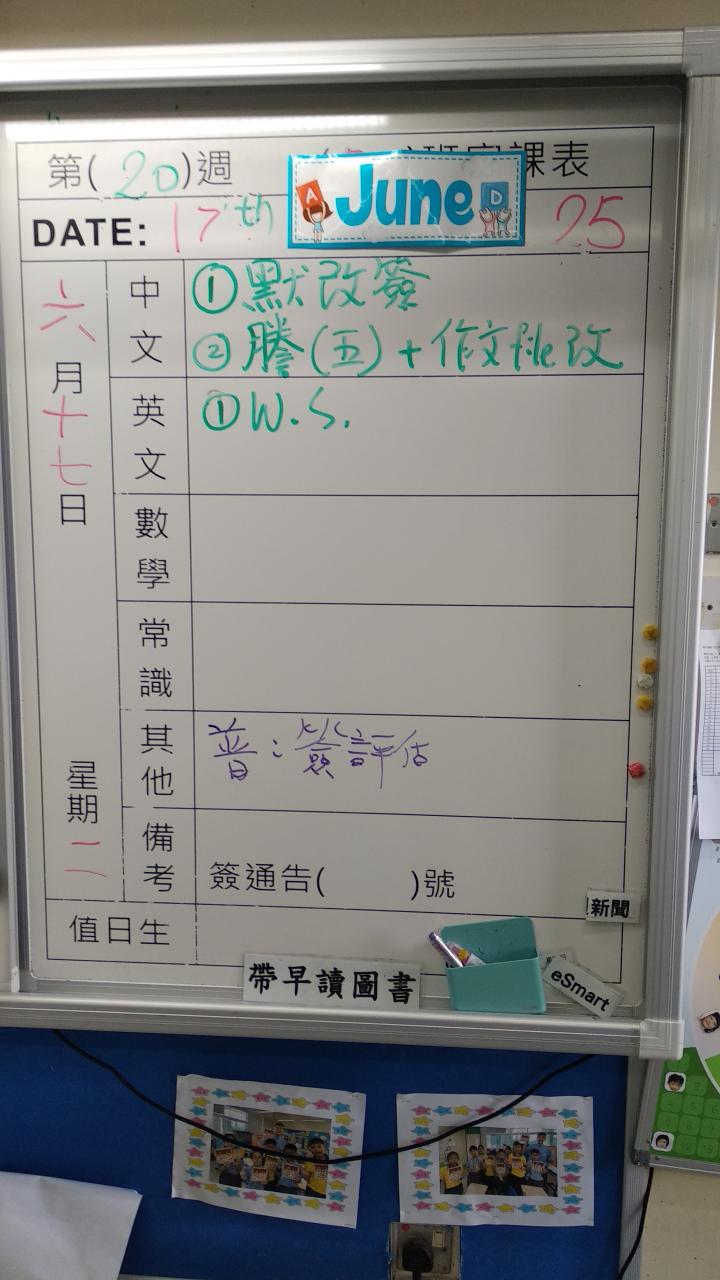 第(20)週
課表
DATE: 17th June 25
A
D
六月十七日
星期二
中文
①默改簽
②謄(五)+作文批改
英文
①W.S.
數學
常識
其他
普:簽評估
備考
簽通告( )號
值日生
新聞
帶早讀圖書
eSmart